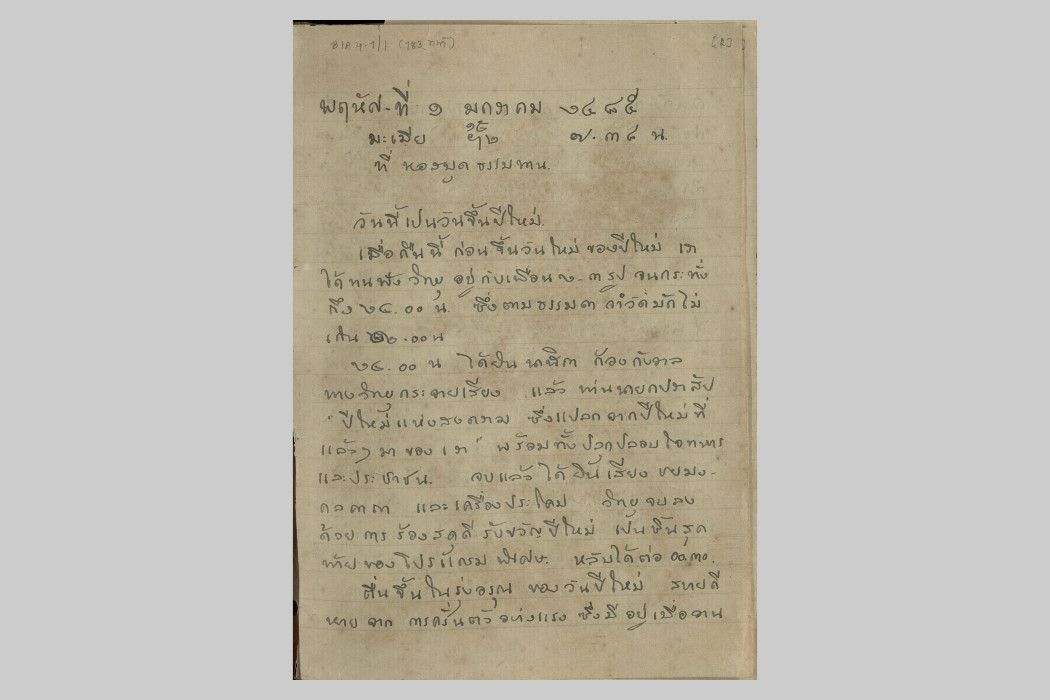 พฤหัส-ที่ ๑ มกราคม ๒๔๘๕
มะเมีย ๗.๓๔ น.
ที่ หอสมุด ธรรมทาน.
วันนี้เปนวันขึ้นปีใหม่.
เมื่อคืนนี้ ก่อนขึ้นวันใหม่ ของปีใหม่ เรา
ได้ทนฟัง วิทยุ อยู่ กับเพื่อน ๒-๓ รูป จนกระทั่ง
ถึง ๒๔.๐๐ น. ซึ่งตามธรรมดา จำวัดมักไม่
เกิน ๒๒.๐๐ น
๒๔.๐๐ น ได้ยิน นาฬิกา ก้องกังวาล
ทางวิทยุกระจายเสียง แล้ว ท่านนายกปราสัย
"ปีใหม่แห่งสงคราม ซึ่งแปลกจากปีใหม่ที่
แล้วๆ มา ของ เรา" พร้อมทั้งปลุกปลอบใจทหาร
และประชาชน. จบแล้ว ได้ยินเสียง ชยมง-
กลคาถา และเครื่องประโคม วิทยุ จบลง
ด้วย การ ร้องสดุดี รับขวัญปีใหม่ เป็นชิ้นสุด
ท้ายของโปรแกรม พิเศษ. หลับได้ต่อ ๐๐.๓๐.
ตื่นขึ้นในรุ่งอรุณ ของวันปีใหม่ สบายดี
หาย จาก การครั่นตัว อย่างแรง ซึ่งมี อยู่ เมื่อวาน